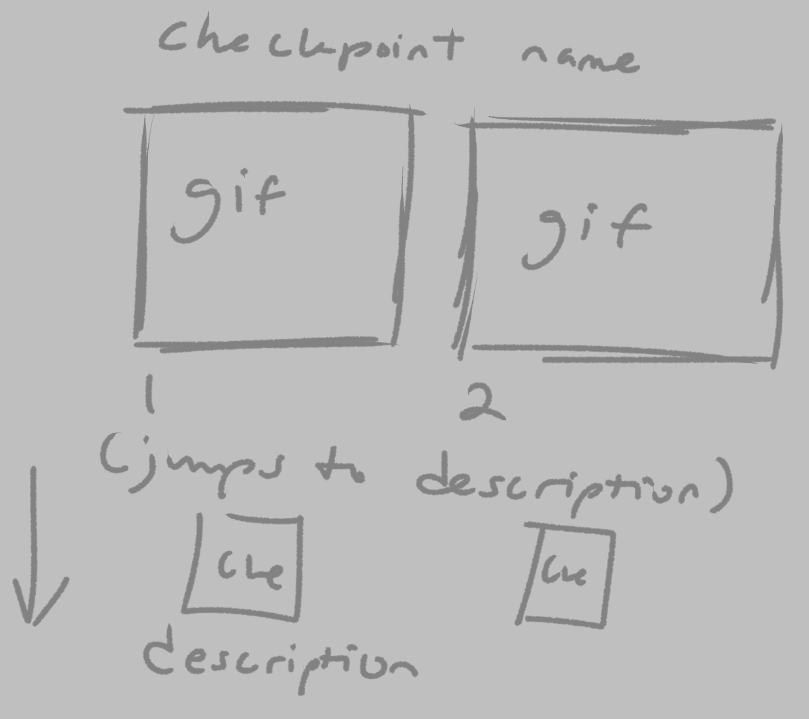 checkpoint name
gif gif
1 2
(jumps to description)
description